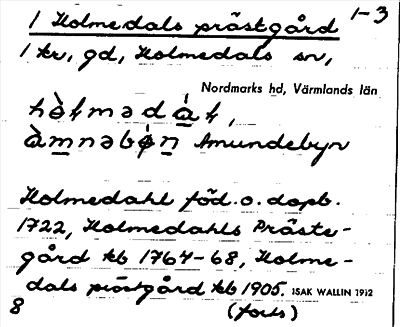 1-3
1 Holmedals prästgård
1 kr, gd, Holmedals sn,
Nordmarks hd, Värmlands län
Amundebyn
Holmedahl föd. o. dopb.
1722, Holmedahls Präste-
gård kb 1764-68, Holme-
dals prästgård kb 1905, ISAK WALLIN 1912
8 (forts)